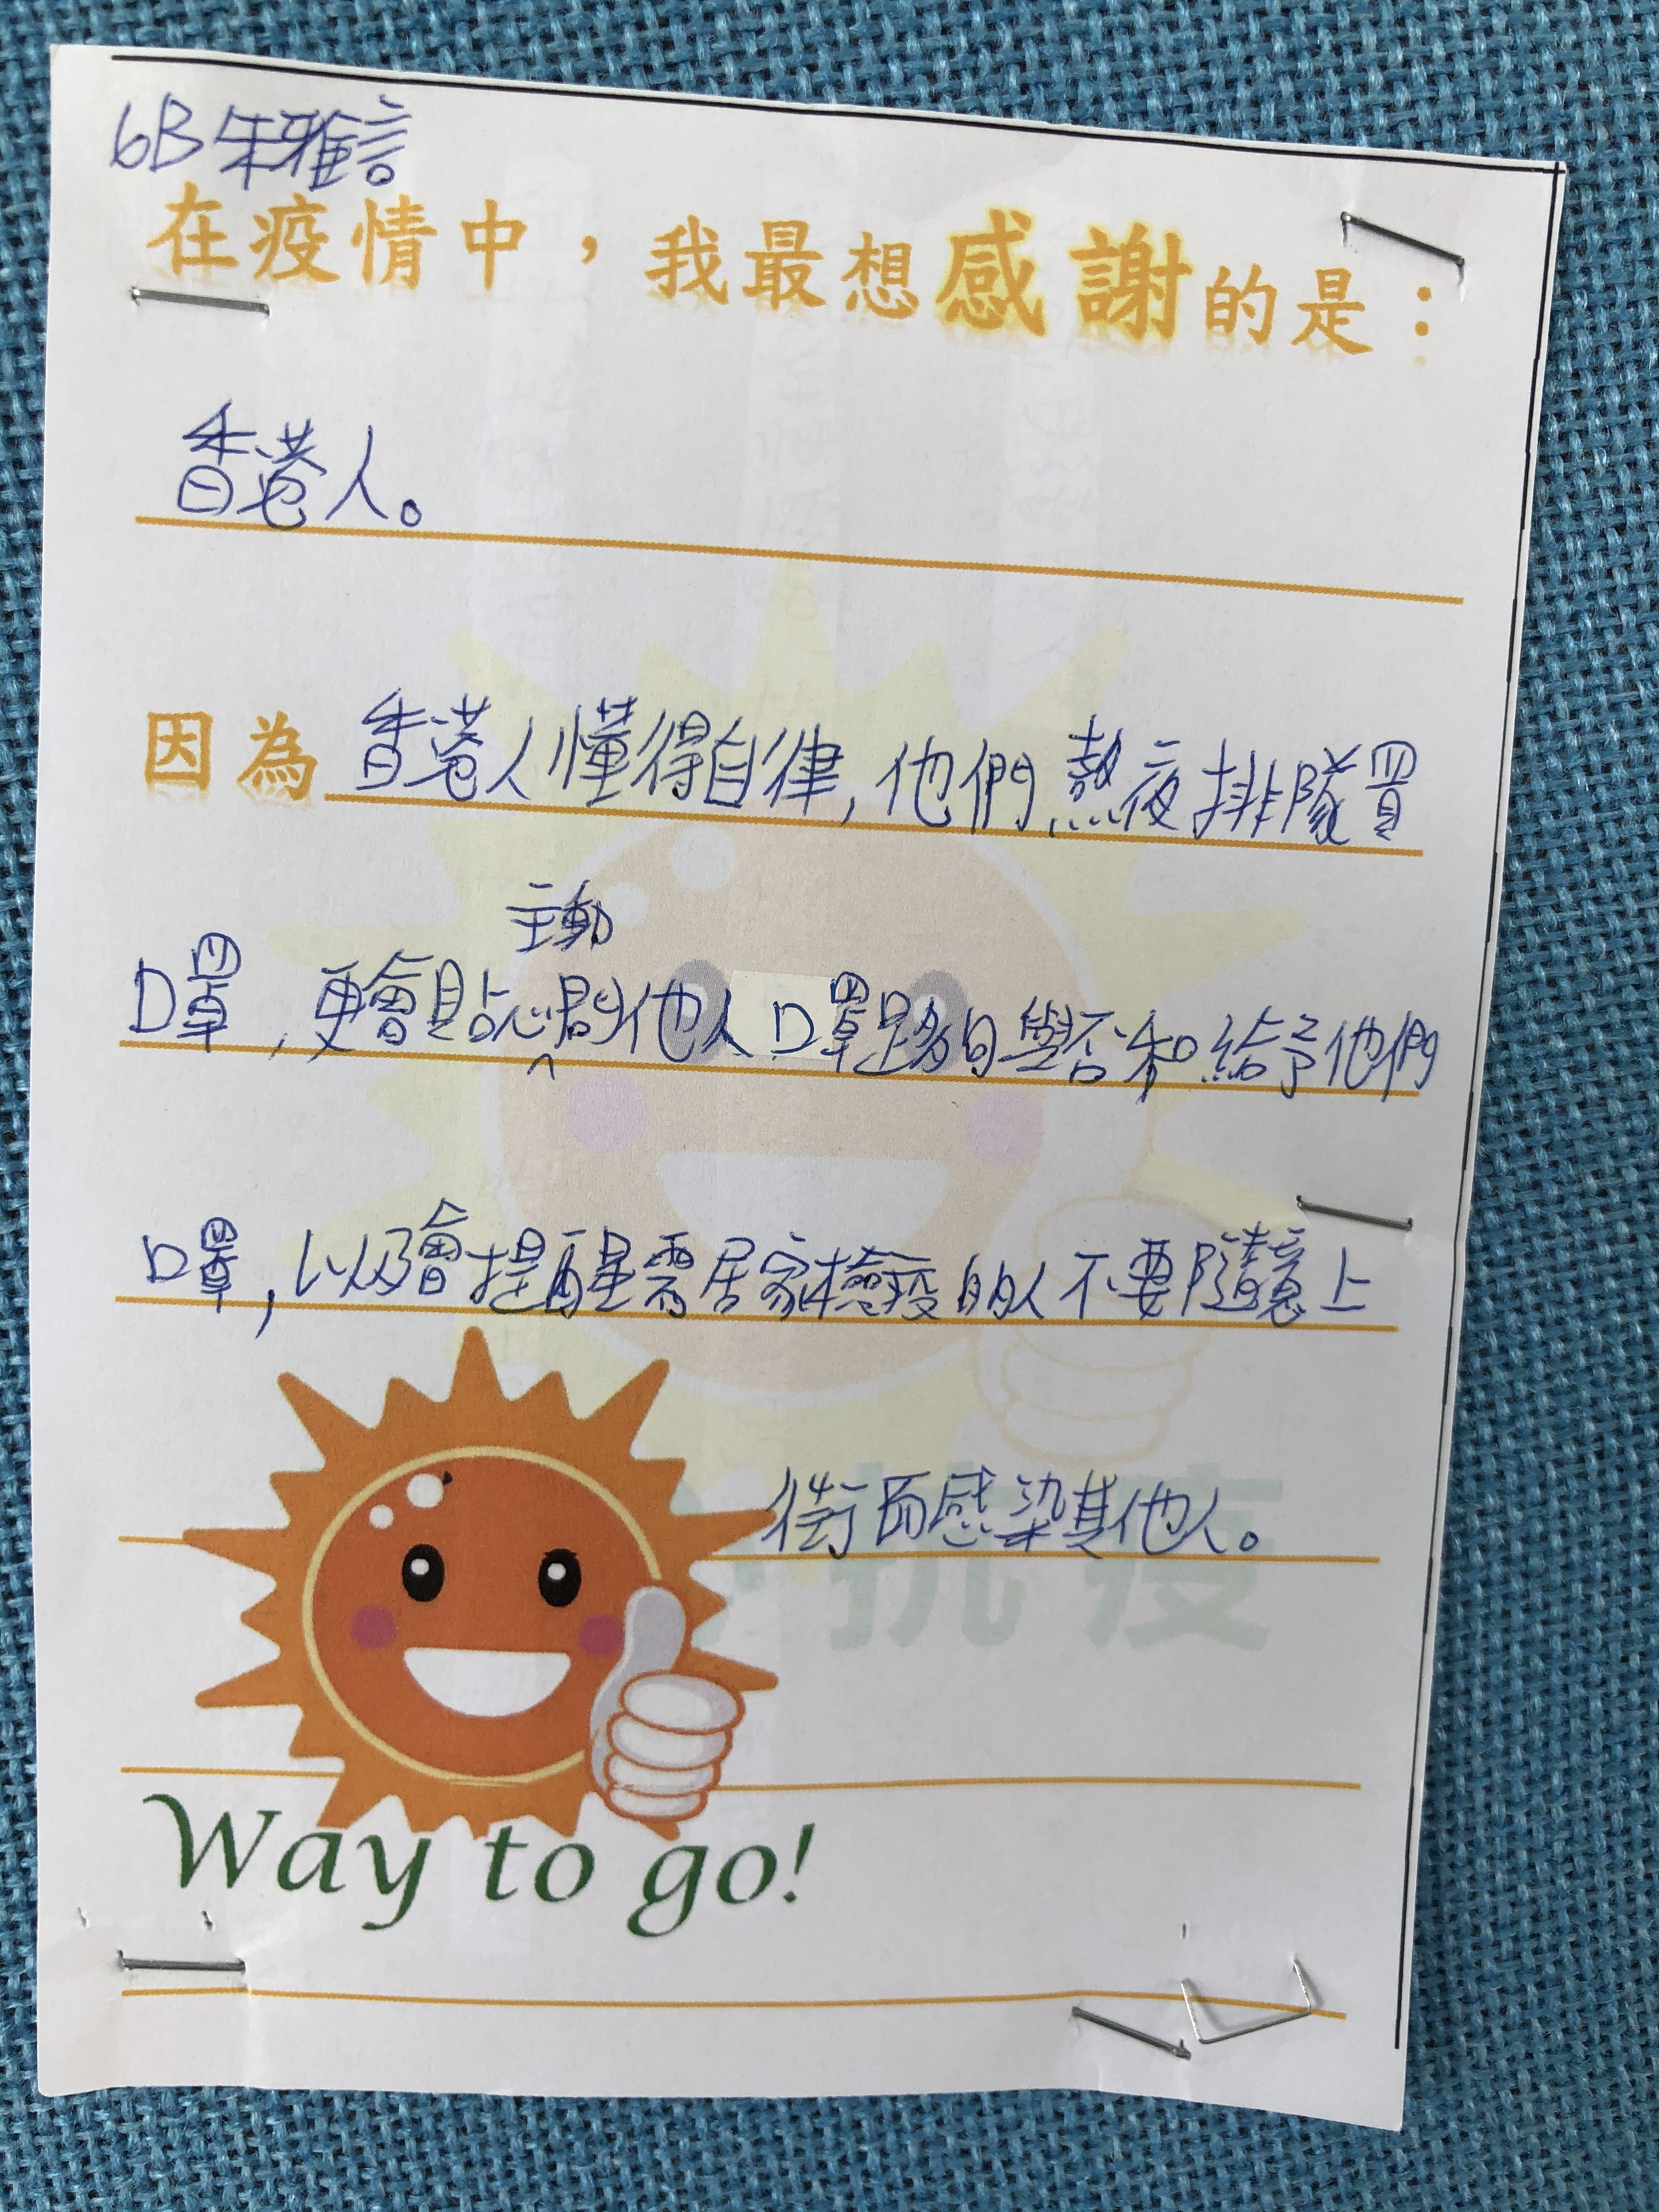 6B 朱雅言
在疫情中，我最想感謝的是：
香港人。
因為 香港人懂得自律，他們熬夜排隊買
口罩，更會貼心主動問他人口罩足夠與否和給予他們
口罩，以及會提醒需居家檢疫的人不要隨意上
街而感染其他人。
抗疫
Way to go!